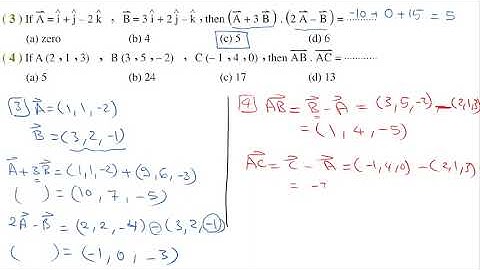 (3) If A⃗ = î + ĵ − 2 k̂ , B⃗ = 3 î + 2 ĵ − k̂ , then (A⃗ + 3 B⃗) . (2 A⃗ − B⃗) = ............ -10 + 0 + 15 = 5
(a) zero (b) 4 (c) 5 (d) 6
(4) If A (2 , 1 , 3) , B (3 , 5 , −2) , C (−1 , 4 , 0) , then AB⃗ . AC⃗ = ............
(a) 5 (b) 24 (c) 17 (d) 13
[3] A⃗ = (1, 1, -2)
B⃗ = (3, 2, -1)
A⃗ + 3B⃗ = (1, 1, -2) + (9, 6, -3)
( ) = (10, 7, -5)
2A⃗ - B⃗ = (2, 2, -4) - (3, 2, -1)
( ) = (-1, 0, -3)
[4] AB⃗ = B⃗ - A⃗ = (3, 5, -2) - (2, 1, 3)
= (1, 4, -5)
AC⃗ = C⃗ - A⃗ = (-1, 4, 0) - (2, 1, 3)
=